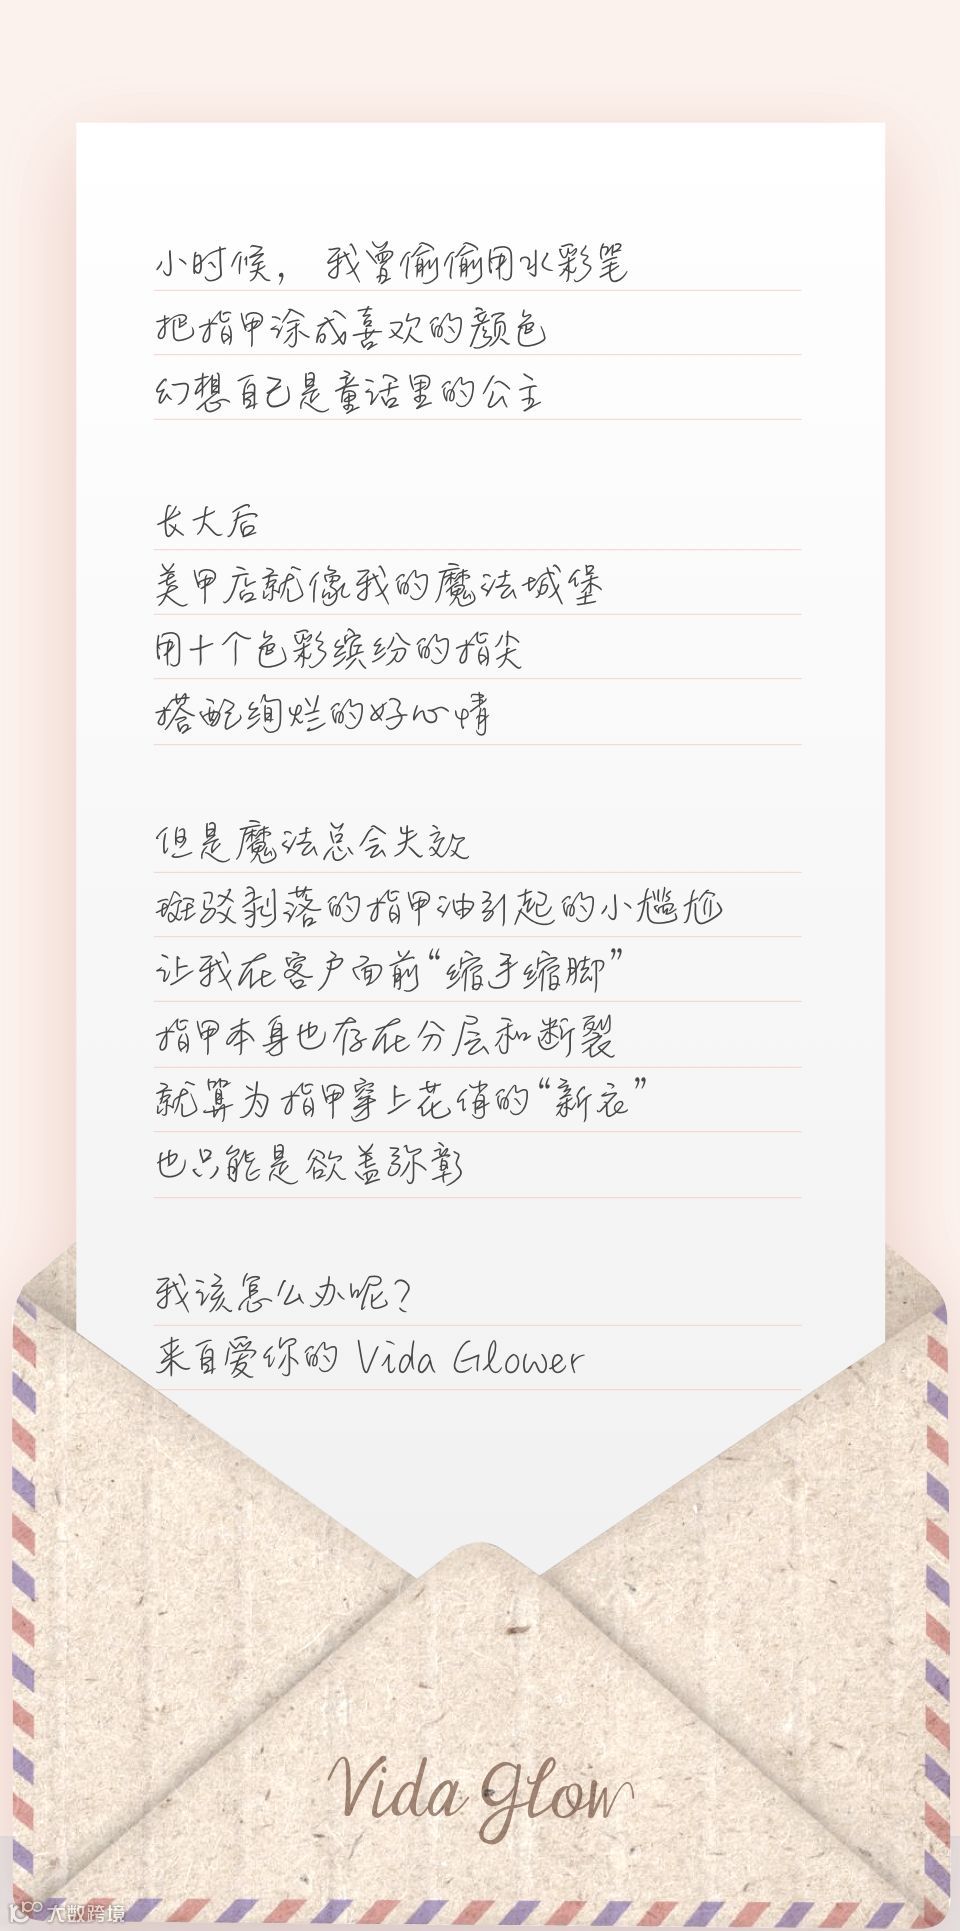 小时候，我曾偷偷用水彩笔
把指甲涂成喜欢的颜色
幻想自己是童话里的公主
长大后
美甲店就像我的魔法城堡
用十个色彩缤纷的指尖
搭配绚烂的好心情
但是魔法总会失效
斑驳剥落的指甲油引起的小尴尬
让我在客户面前“缩手缩脚”
指甲本身也存在分层和断裂
就算为指甲穿上花俏的“新衣”
也只能是欲盖弥彰
我该怎么办呢？
来自爱你的 Vida Glower
Vida Glow
大数跨境